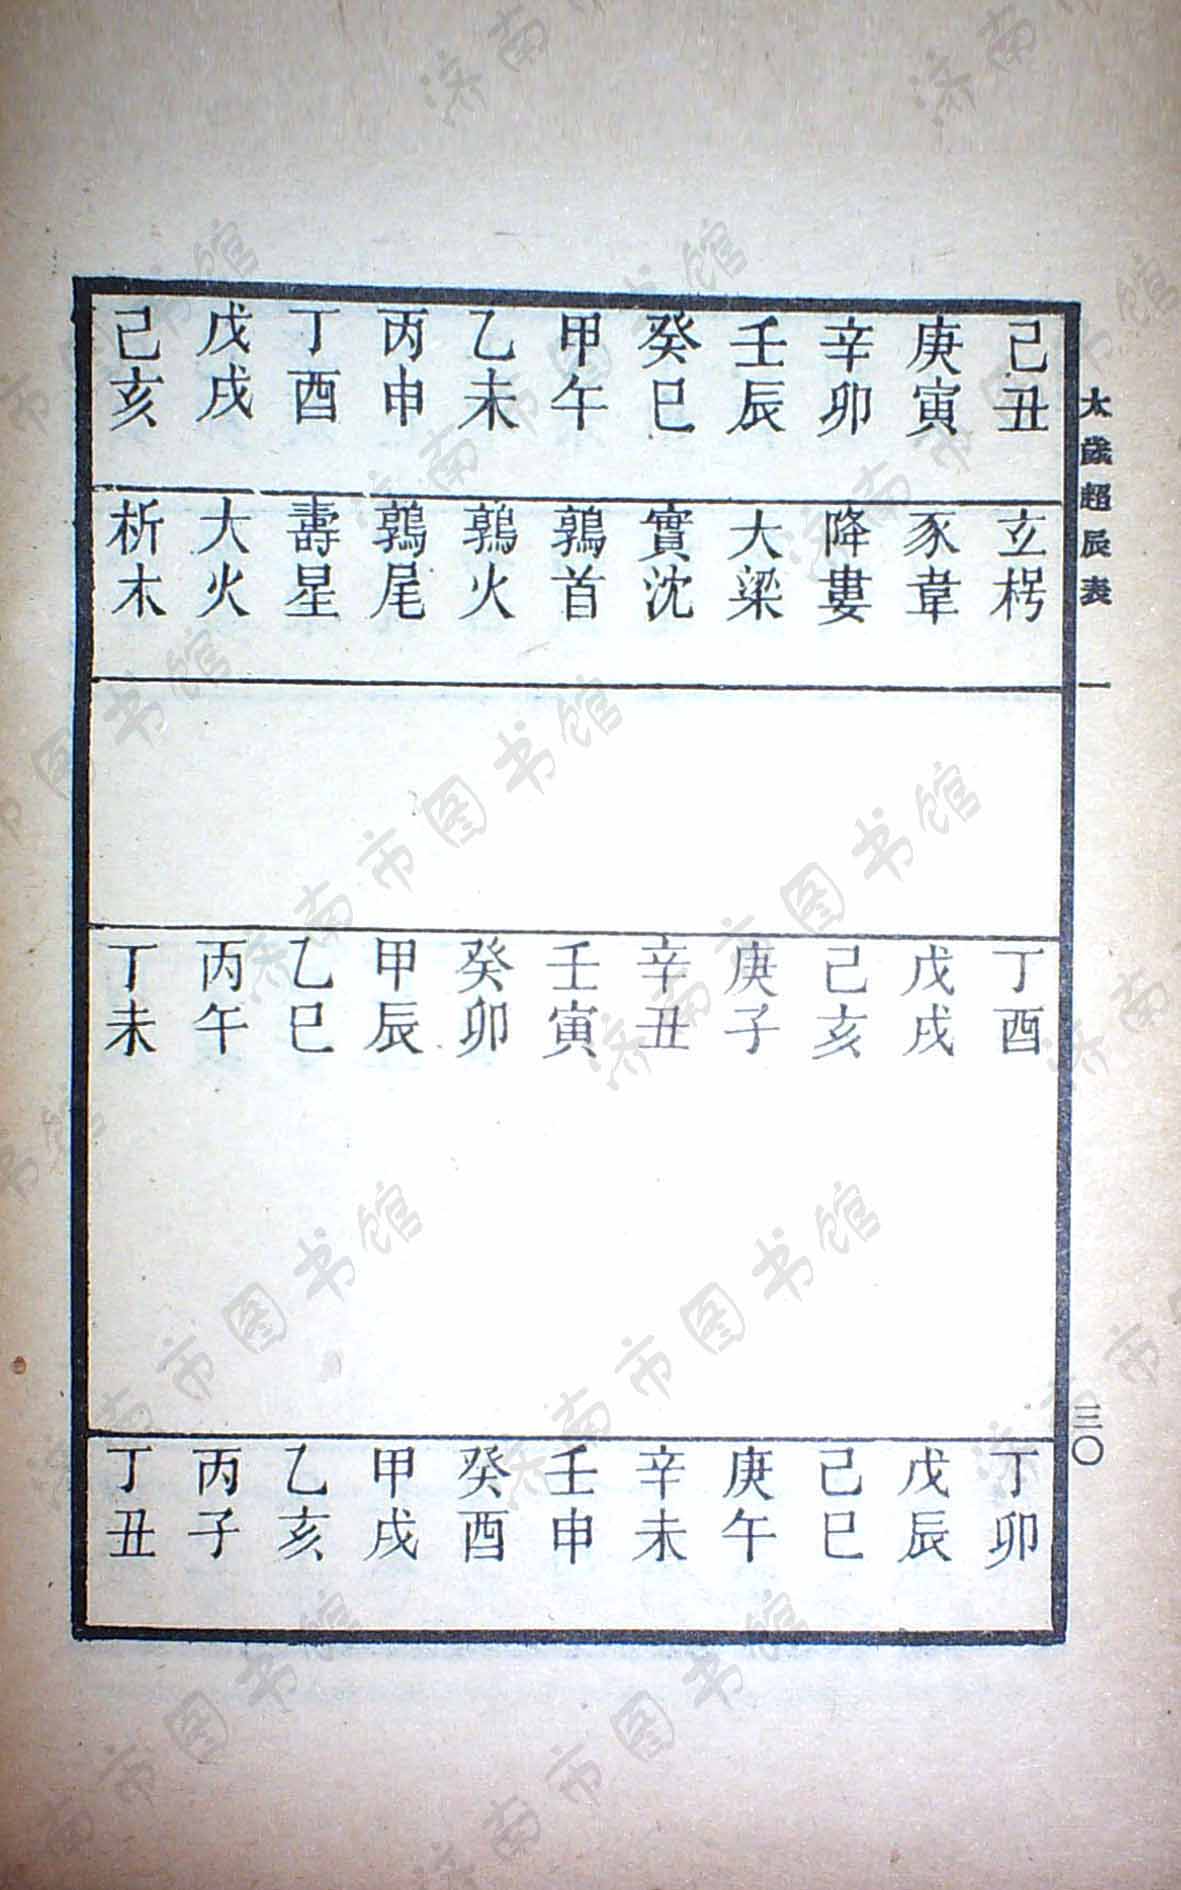 太歲超辰表 一 三〇
己丑 玄枵 丁酉 丁卯
庚寅 豕韋 戊戌 戊辰
辛卯 降婁 己亥 己巳
壬辰 大梁 庚子 庚午
癸巳 實沈 辛丑 辛未
甲午 鶉首 壬寅 壬申
乙未 鶉火 癸卯 癸酉
丙申 鶉尾 甲辰 甲戌
丁酉 壽星 乙巳 乙亥
戊戌 大火 丙午 丙子
己亥 析木 丁未 丁丑
济南市图书馆